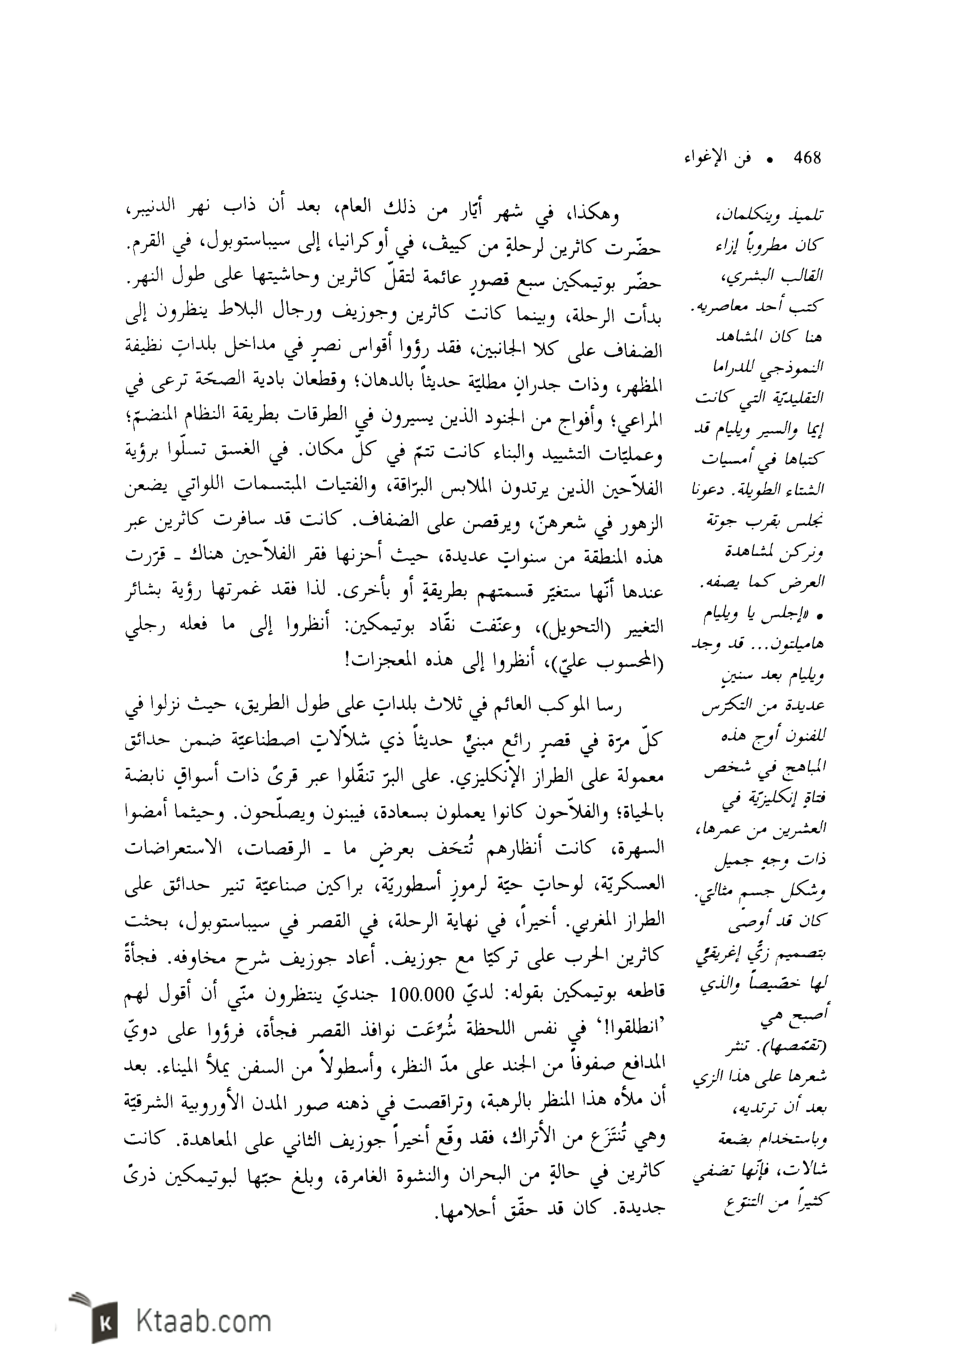 468 • فن الإغواء
وهكذا، في شهر أيّار من ذلك العام، بعد أن ذاب نهر الدنيبر،
حضّرت كاثرين لرحلةٍ من كييڤ، في أوكرانيا، إلى سيباستوبول، في القرم.
حضّر بوتيمكين سبع قصورٍ عائمة لتقلّ كاثرين وحاشيتها على طول النهر.
بدأت الرحلة، وبينما كانت كاثرين وجوزيف ورجال البلاط ينظرون إلى
الضفاف على كلا الجانبين، فقد رؤوا أقواس نصرٍ في مداخل بلداتٍ نظيفة
المظهر، وذات جدرانٍ مطليّة حديثاً بالدهان؛ وقطعان بادية الصحّة ترعى في
المراعي؛ وأفواج من الجنود الذين يسيرون في الطرقات بطريقة النظام المنضمّ؛
وعمليّات التشييد والبناء كانت تتمّ في كلّ مكان. في الغسق تسلّوا برؤية
الفلاّحين الذين يرتدون الملابس البرّاقة، والفتيات المبتسمات اللواتي يضعن
الزهور في شعرهنّ، ويرقصن على الضفاف. كانت قد سافرت كاثرين عبر
هذه المنطقة من سنواتٍ عديدة، حيث أحزنها فقر الفلاّحين هناك ـ قرّرت
عندها أنّها ستغيّر قسمتهم بطريقةٍ أو بأخرى. لذا فقد غمرتها رؤية بشائر
التغيير (التحويل)، وعنّفت نقّاد بوتيمكين: أنظروا إلى ما فعله رجلي
(المحسوب عليّ)، أنظروا إلى هذه المعجزات!
رسا الموكب العائم في ثلاث بلداتٍ على طول الطريق، حيث نزلوا في
كلّ مرّة في قصرٍ رائعٍ مبنيٍّ حديثاً ذي شلاّلاتٍ اصطناعيّة ضمن حدائق
معمولة على الطراز الإنكليزي. على البرّ تنقّلوا عبر قرىً ذات أسواقٍ نابضة
بالحياة؛ والفلاّحون كانوا يعملون بسعادة، فيبنون ويصلّحون. وحيثما أمضوا
السهرة، كانت أنظارهم تُتحَف بعرضٍ ما ـ الرقصات، الاستعراضات
العسكريّة، لوحاتٍ حيّة لرموزٍ أسطوريّة، براكين صناعيّة تنير حدائق على
الطراز المغربي. أخيراً، في نهاية الرحلة، في القصر في سيباستوبول، بحثت
كاثرين الحرب على تركيّا مع جوزيف. أعاد جوزيف شرح مخاوفه. فجأةً
قاطعه بوتيمكين بقوله: لديّ 100.000 جنديّ ينتظرون منّي أن أقول لهم
'انطلقوا!' في نفس اللحظة شُرِّعَت نوافذ القصر فجأة، فرؤوا على دويّ
المدافع صفوفاً من الجند على مدّ النظر، وأسطولاً من السفن يملأ الميناء. بعد
أن ملأه هذا المنظر بالرهبة، وتراقصت في ذهنه صور المدن الأوروبية الشرقيّة
وهي تُنتَزَع من الأتراك، فقد وقّع أخيراً جوزيف الثاني على المعاهدة. كانت
كاثرين في حالةٍ من البحران والنشوة الغامرة، وبلغ حبّها لبوتيمكين ذرىً
جديدة. كان قد حقّق أحلامها.
تلميذ وينكلمان،
كان مطروباً إزاء
القالب البشري،
كتب أحد معاصريه.
هنا كان المشاهد
النموذجي للدراما
التقليديّة التي كانت
إيما والسير ويليام قد
كتباها في أمسيات
الشتاء الطويلة. دعونا
نجلس بقرب جوتة
ونركن لمشاهدة
العرض كما يصفه.
• «إجلس يا ويليام
هاميلتون... قد وجد
ويليام بعد سنينٍ
عديدة من التكرّس
للفنون أوج هذه
المباهج في شخص
فتاةٍ إنكليزيّة في
العشرين من عمرها،
ذات وجهٍ جميل
وشكل جسمٍ مثالي.
كان قد أوصى
بتصميم زيٍّ إغريقيٍّ
لها خصّيصاً والذي
أصبح هي
(تقمّصها). تنثر
شعرها على هذا الزي
بعد أن ترتديه،
وباستخدام بضعة
شالات، فإنّها تضفي
كثيراً من التنوّع
Ktaab.com